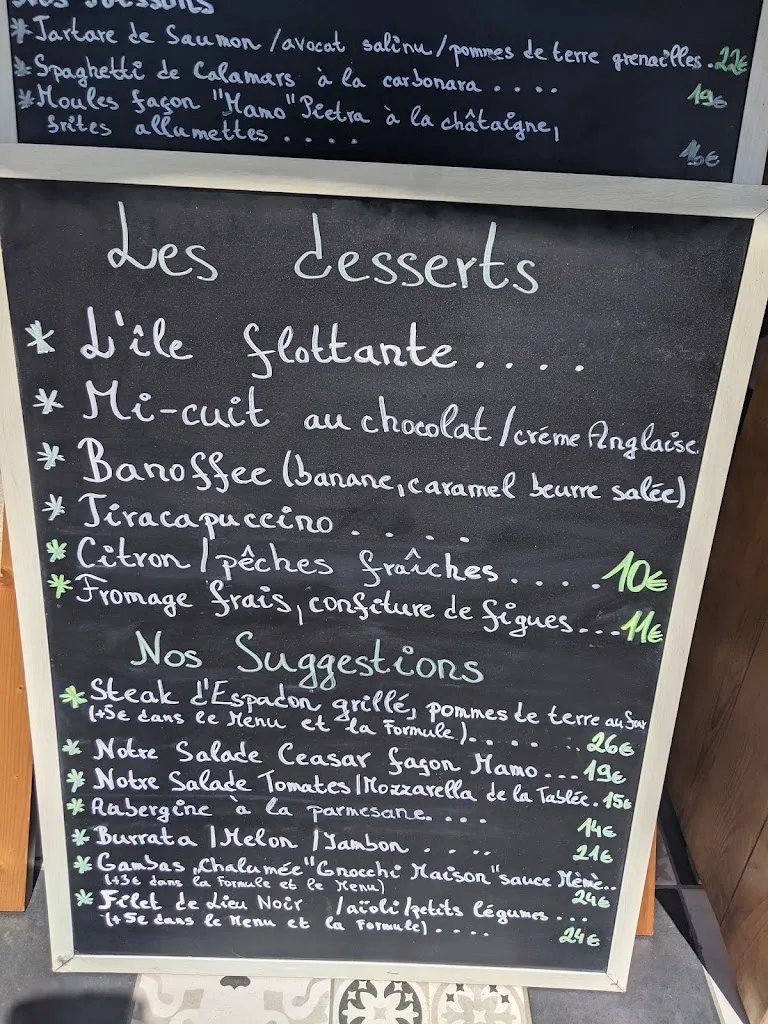 Nos Poissons
* Tartare de Saumon / avocat salinu / pommes de terre grenailles . 22€
* Spaghetti de Calamars à la carbonara . . . . 19€
* Moules façon "Mamo" Pietra à la châtaigne,
frites allumettes . . . . 16€
Les desserts
* L'île flottante . . . .
* Mi-cuit au chocolat / créme Anglaise
* Banoffee (banane, caramel beurre salée)
* Tiracapuccino . . . .
* Citron / pêches fraîches . . . . 10€
* Fromage frais, confiture de figues . . . 11€
Nos Suggestions
* Steak d'Espadon grillé, pommes de terre au four
(+5€ dans le Menu et la Formule) . . . . . . 26€
* Notre Salade Ceasar façon Mamo . . . 19€
* Notre Salade Tomates / Mozzarella de la Tablée . 15€
* Aubergine à la parmesane . . . . 14€
* Burrata / Melon / Jambon . . . . 21€
* Gambas "Chalumée" Gnocchi Maison" sauce Mémé . .
(+3€ dans la Formule et le Menu) 24€
* Filet de Lieu Noir / aïoli / petits légumes . . .
(+5€ dans le Menu et la Formule) . . . . 24€